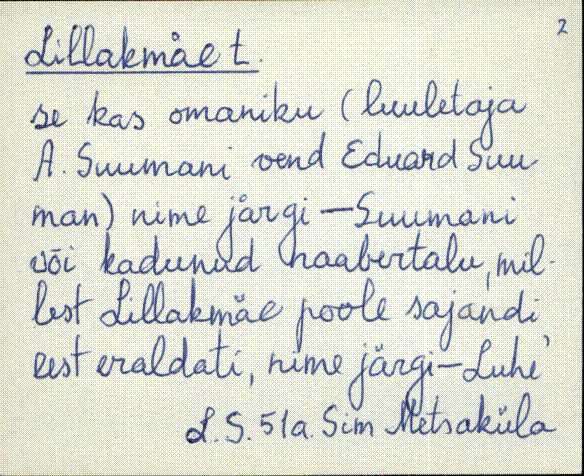 2
Lillakmäe t.
se kas omaniku (luuletaja
A. Suumani vend Eduard Suu
man) nime järgi - Suumani
või kadunud naabertalu, mil-
lest Lillakmäe poole sajandi
eest eraldati, nime järgi - Luhe'
L. S. 51a. Sim Metsaküla